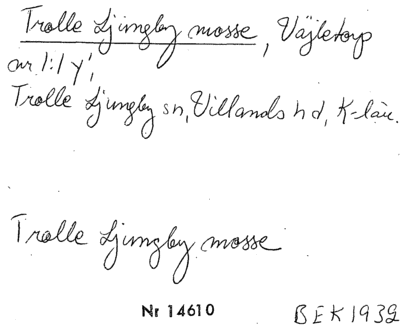 Trolle Ljungby mosse, Väjletorp
nr 1:1 y',
Trolle Ljungby sn, Villands hd, K-län.
Trolle Ljungby mosse
Nr 14610 BEK1932